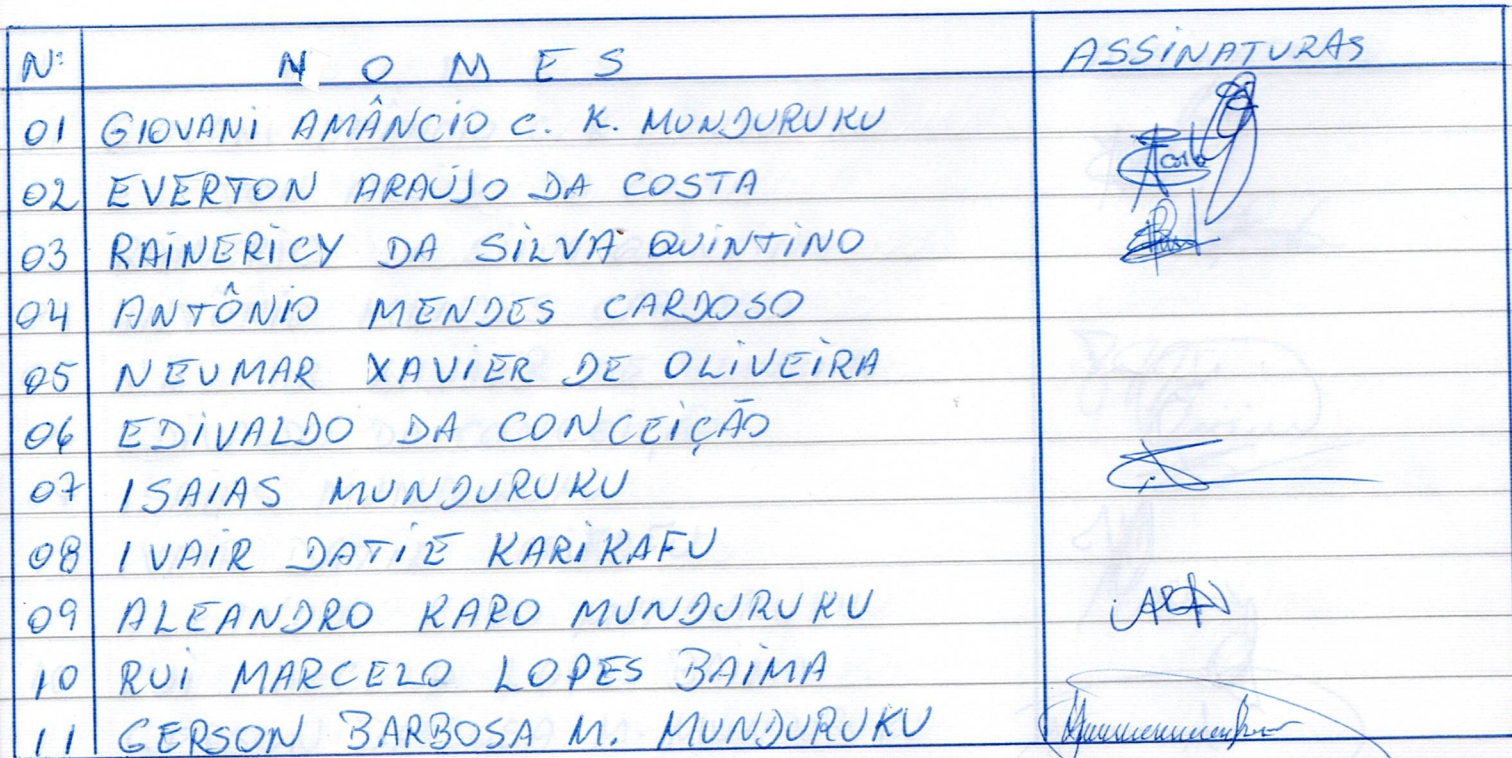 Nº NOMES ASSINATURAS
01 GIOVANI AMÂNCIO C. K. MUNDURUKU
02 EVERTON ARAÚJO DA COSTA
03 RAINERICY DA SILVA QUINTINO
04 ANTÔNIO MENDES CARDOSO
05 NEUMAR XAVIER DE OLIVEIRA
06 EDIVALDO DA CONCEIÇÃO
07 ISAIAS MUNDURUKU
08 IVAIR DATIE KARIKAFU
09 ALEANDRO KARO MUNDURUKU
10 RUI MARCELO LOPES BAIMA
11 GERSON BARBOSA M. MUNDURUKU